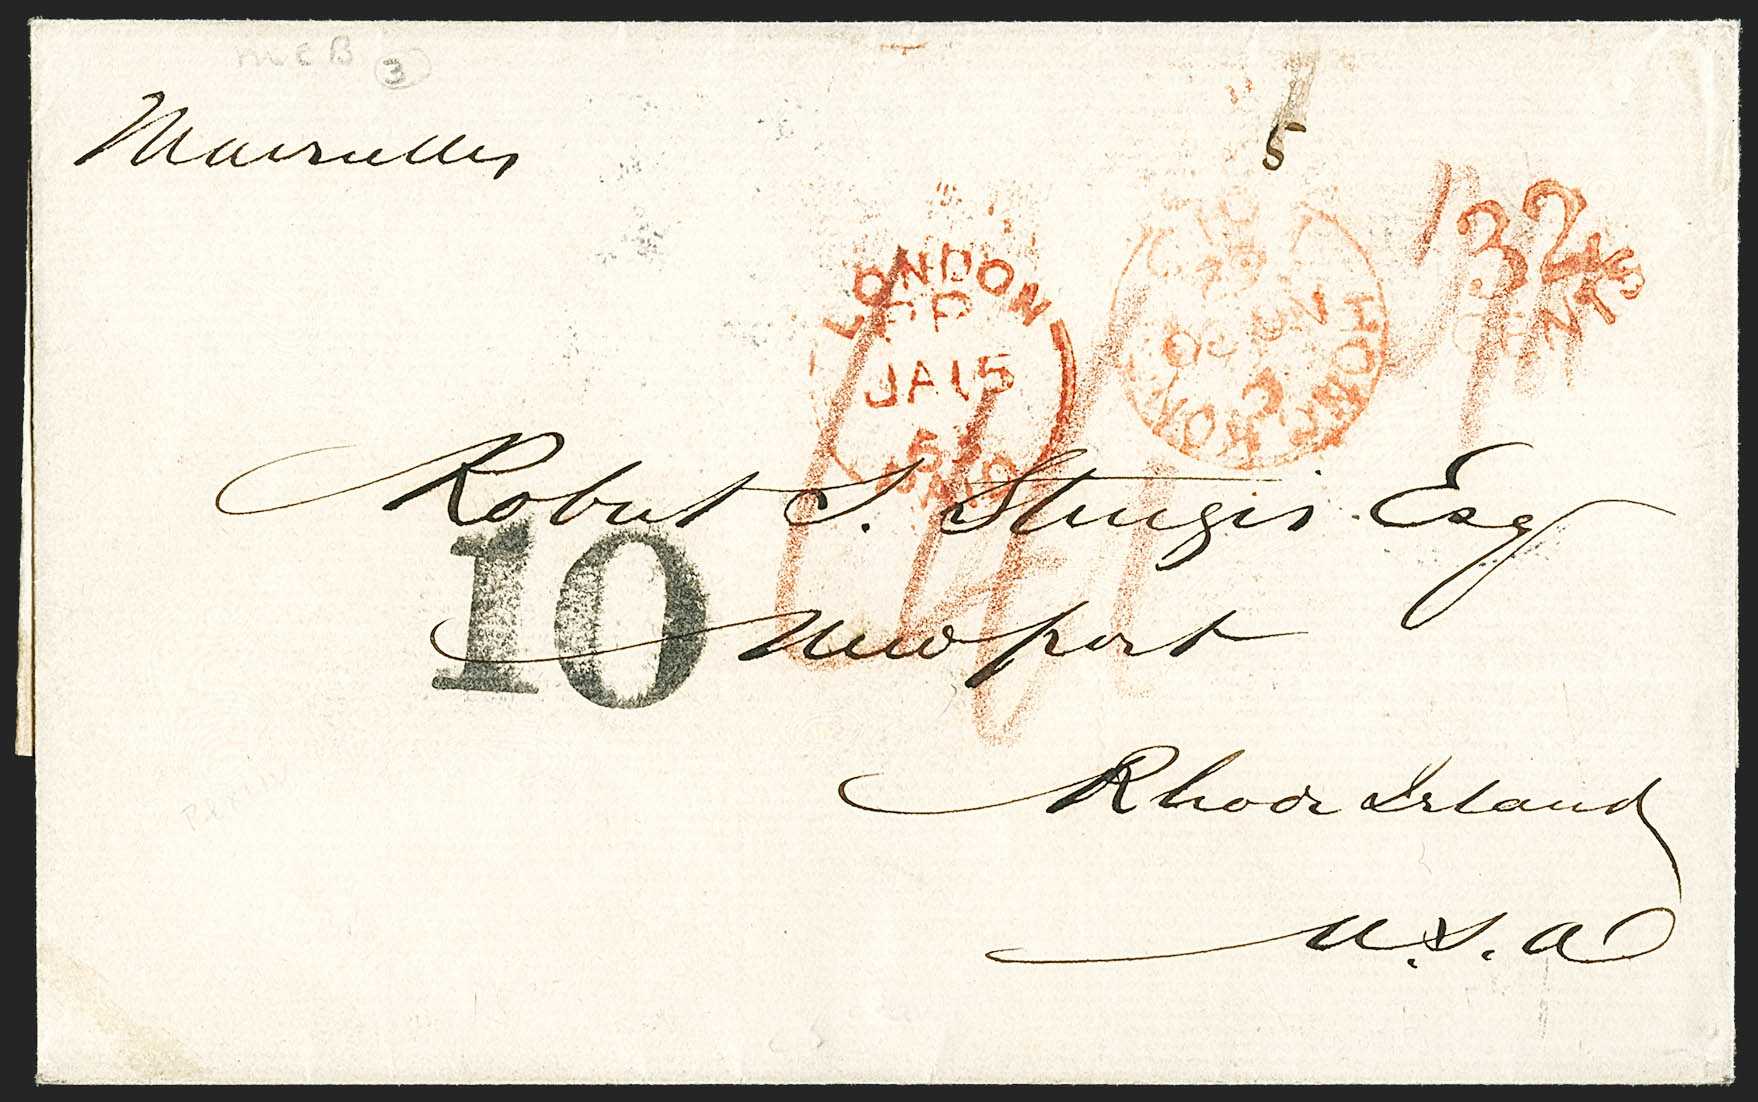 McB 3
Marseilles
5
32 CENTS
LONDON
PD
JA 15
PAID
HONG KONG
Robert S. Sturgis Esq
10
Newport
Rhode Island
U.S.A